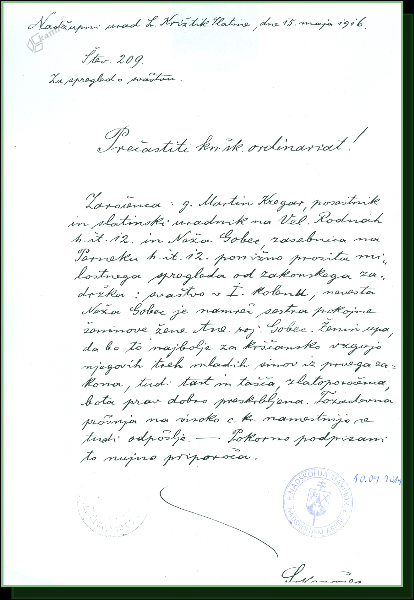 Nadžupni urad Sv. Križ tik Slatine, dne 15. maja 1916.
Štev. 209.
Za spregled o svaštvu.
Prečastiti kn. šk. ordinarijat!
Zaročenca: g. Martin Kregar, posestnik
in slatinski uradnik na Vel. Rodnah
h. št. 12. in Neža Gobec, zasebnica na
h. št. 12. ponižno prosita mi-
lostnega spregleda od zakonskega za-
držka: svaštvo v I. kolenu, nevesta
Neža Gobec je namreč sestra pokojne
ženinove žene Ane roj. Gobec. Ženin upa,
da bo to najbolje za krščansko vzgojo
njegovih treh mladih sinov iz prvega za-
kona, tudi tast in tašča, zlatoporočenca,
bota prav dobro preskrbljena. Tozadevna
prošnja na visoko c. k. namestnijo se
tudi odpošlje. — Pokorno podpisani
to nujno priporoča.